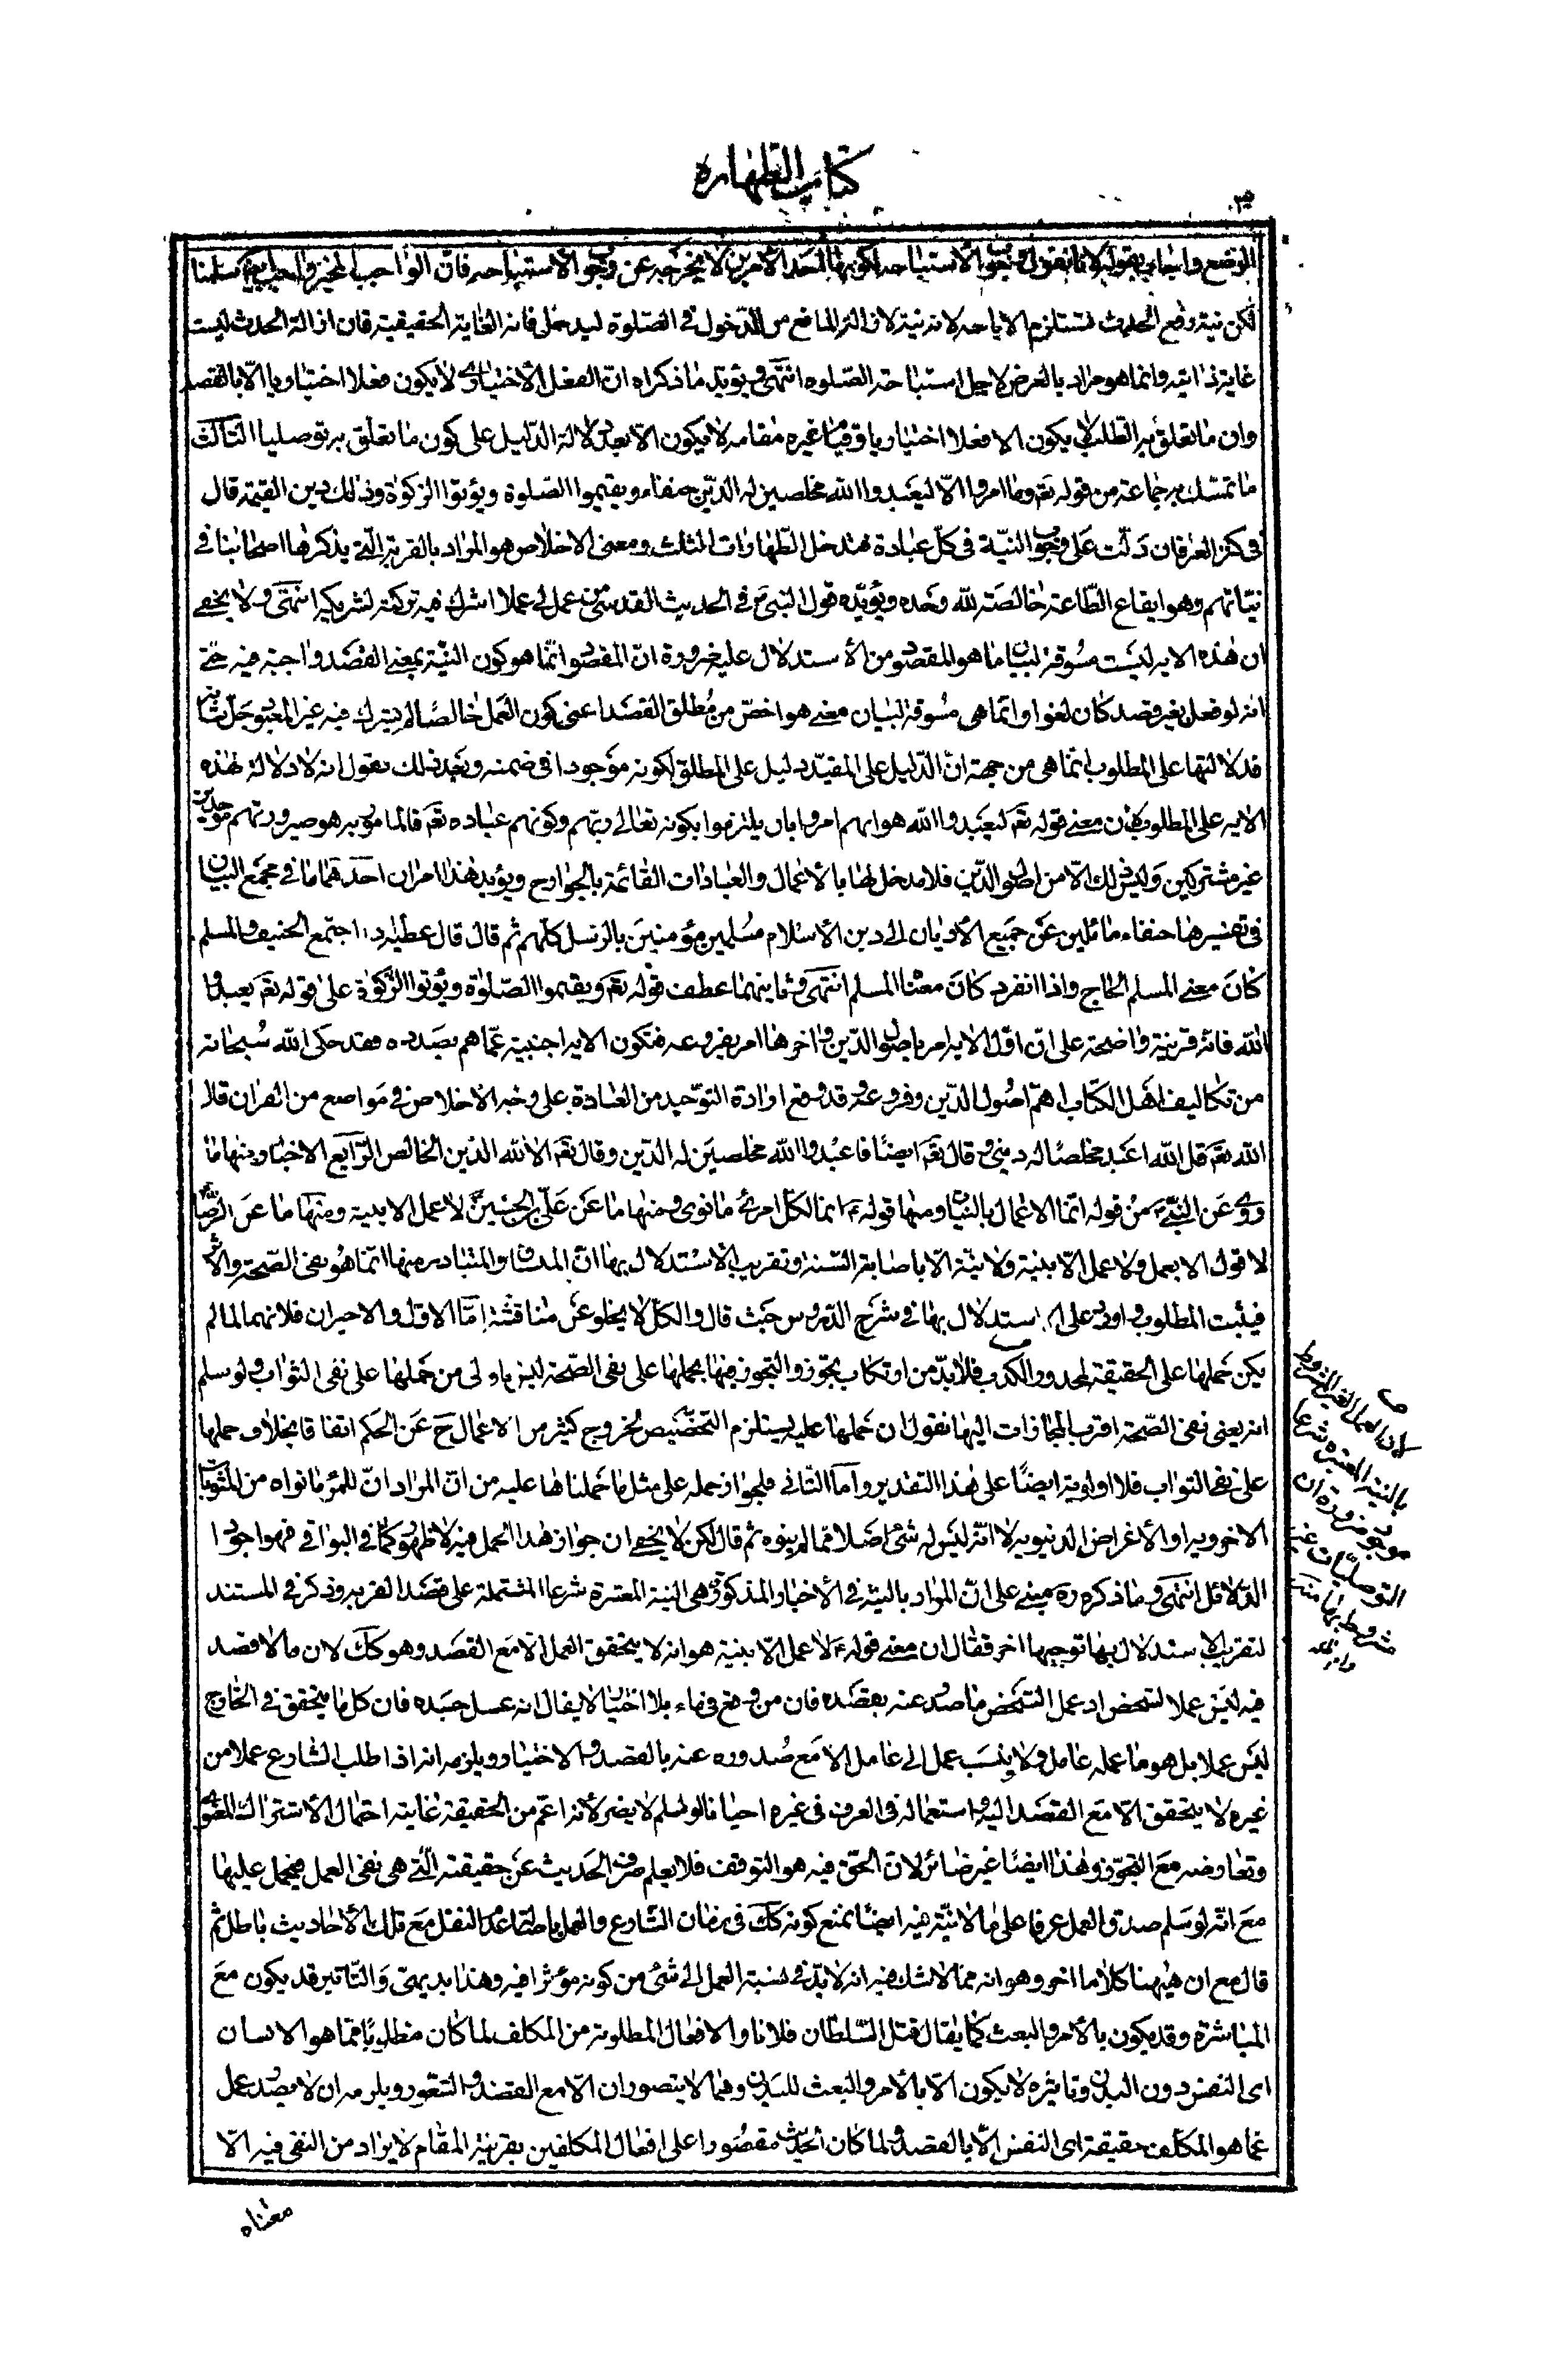 كتاب الطهارة
الموضع واجاب بقوله لانا نقول وجوب الاستباحه لكونها احد الامرين لا يخرجه عن وجوب الاستباحه فان الواجب المخير واجب سلمنا
لكن نية رفع الحدث تستلزم الاباحه لانه نية لازالة المانع من الدخول في الصلوة ليدخل فانه الغاية الحقيقية فان ازالة الحدث ليست
غاية ذاتيه وانما هو مراد بالعرض لاجل استباحة الصلوه انتهى ويؤيد ما ذكراه ان الفعل الاختياري لا يكون فعلا اختياريا الا بالقصد
وان ما تعلق به الطلب لا يكون الا فعلا اختياريا وقيام غيره مقامه لا يكون الا بعد دلالة الدليل على كون ما تعلق به توصليا الثالث
ما تمسك به جماعة من قوله تعَ وما امروا الا ليعبدوا الله مخلصين له الدين حنفاء ويقيموا الصلوة ويؤتوا الزكوة وذلك دين القيمة قال
في كنز العرفان دلت على وجوب النية في كل عبادة فتدخل الطهارات الثلث ومعنى الاخلاص هو المراد بالقربة التي يذكرها اصحابنا في
نياتهم وهو ايقاع الطاعة خالصة لله وحده ويؤيده قول النبي ص في الحديث القدسي من عمل لي عملا اشرك فيه تركته لشريكه انتهى ولا يخفى
ان هذه الايه ليست مسوقة لبيان ما هو المقصود من الاستدلال عليه ضرورة ان المقصود انما هو كون النية بمعنى القصد واجبة فيه حتى
انه لو فعل بغير قصد كان لغوا وانما هي مسوقة لبيان معنى هو اخص من مطلق القصد اعني كون العمل خالصا لم يشرك فيه غير المعبود جل شانه
فدلالتها على المطلوب انما هي من جهة ان الدليل على المقيد دليل على المطلق لكونه موجودا في ضمنه وبعد ذلك نقول انه لا دلالة لهذه
الايه على المطلوب لان معنى قوله تعَ ليعبدوا الله هو انهم امروا بان يلتزموا بكونه تعالى ربهم وكونهم عباده تعَ فالمامور به هو صيرورتهم موحدين
غير مشتركين وليس ذلك الا من اصول الدين فلا مدخل لها بالاعمال والعبادات القائمة بالجوارح ويؤيد هذا امران احدهما ما في مجمع البيان
في تفسيرها حنفاء مائلين عن جميع الاديان الى دين الاسلام مسلمين مؤمنين بالرسل كلهم ثم قال قال عطيه اذا اجتمع الحنيف والمسلم
كان معنى المسلم الحاج واذا انفرد كان معناه المسلم انتهى وثانيهما عطف قوله تعَ ويقيموا الصلوة ويؤتوا الزكوة على قوله تعَ يعبدوا
الله فانه قرينة واضحة على ان اول الايه امر باصول الدين واخرها امر بفروعه فتكون الايه اجنبية عما هم بصدده وقد حكى الله سبحانه
من تكاليف اهل الكتاب اهم اصول الدين وفروعه وقد وقع ارادة التوحيد من العبادة على وجه الاخلاص في مواضع من القران قال
الله تعَ قل الله اعبد مخلصا له ديني وقال تعَ ايضا فاعبدوا الله مخلصين له الدين وقال تعَ الا لله الدين الخالص الرابع الاخبار ومنها ما
روى عن النبي ص من قوله انما الاعمال بالنيات ومنها قوله ع انما لكل امرئ ما نوى ومنها ما عن علي بن الحسين ع لا عمل الا بنية ومنها ما عن الرضا
لا قول الا بعمل ولا عمل الا بنية ولا نية الا باصابة السنة وتقريب الاستدلال بها ان المنساق والمتبادر منها انما هو نفي الصحة والاثر
فيثبت المطلوب واورد على الاستدلال بها في شرح الدروس حيث قال والكل لا يخلو عن مناقشة اما الاول والاخيران فلانهما لما لم
يكن حملها على الحقيقة لمحذور الكذب فلا بد من ارتكاب تجوز والتجوز فيها بحملها على نفي الصحة ليس باولى من حملها على نفي الثواب ولو سلم
انه يعني نفي الصحة اقرب المجازات اليها نقول ان حملها عليه يستلزم التخصيص لخروج كثير من الاعمال ح عن الحكم اتفاقا بخلاف حملها
على نفي الثواب فلا اولوية ايضا على هذا التقدير واما الثاني فلجواز حمله على مثل ما حملناها عليه من ان المراد ان للمرء ما نواه من المثوبات
الاخرويه او الاغراض الدنيويه لا انه ليس له شئ اصلا مما لم ينوه ثم قال لكن لا يخفى ان جواز هذا الحمل فيه لا ظهور كما في البواقي فهو اجود
الدلائل انتهى وما ذكره ره مبني على ان المراد بالنية في الاخبار المذكورة هي النية المعتبرة شرعا المشتملة على قصد القربه وذكر في المستند
لتقريب الاستدلال بها توجيها اخر فقال ان معنى قوله ع لا عمل الا بنية هو انه لا يتحقق العمل الا مع القصد وهو كك لان ما لا قصد
فيه ليس عملا لشخص اذ عمل الشخص ما صدر عنه بقصده فان من وقع في ماء بلا اختيار لا يقال انه غسل جسده فان كل ما يتحقق في الخارج
ليس عملا بل هو ما عمله عامل ولا ينسب عمل الى عامل الا مع صدوره عنه بالقصد والاختيار ويلزمه انه اذا طلب الشارع عملا من
غيره لا يتحقق الا مع القصد اليه واستعماله في العرف في غيره احيانا لو سلم لا يضر لانه اعم من الحقيقة غايته احتمال الاشتراك المعنوي
وتعارضه مع التجوز وهذا ايضا غير ضائر لان الحق فيه هو التوقف فلا يعلم صرف الحديث عن حقيقته التي هي نفي العمل فيحمل عليها
مع انه لو سلم صدق العمل عرفا على ما لا نية فيه ايضا نمنع كونه كك في زمان الشارع والعمل باصالة عدم النقل مع تلك الاحاديث باطل ثم
قال مع ان ههنا كلاما اخر وهو انه مما لا شك فيه انه لا بد في نسبة العمل الى شئ من كونه مؤثرا فيه وهذا بديهي والتاثير قد يكون مع
المباشرة وقد يكون بالامر والبعث كما يقال قتل السلطان فلانا والافعال المطلوبة من المكلف لما كان مطلوبا مما هو الانسان
اى النفس دون البدن وتاثيره لا يكون الا بالامر والبعث للبدن وهما لا يتصوران الا مع القصد والشعور ويلزمه ان لا يصدر عمل
عما هو المكلف حقيقة اى النفس الا بالقصد ولما كان الحديث مقصورا على افعال المكلفين بقرينة المقام لا يراد من النفي فيه الا
معناه
لان العمل الغير المربوط
بالنية المعتبرة شرعا
موجود ضرورة ان
التوصليات غير
مشروط بها منه